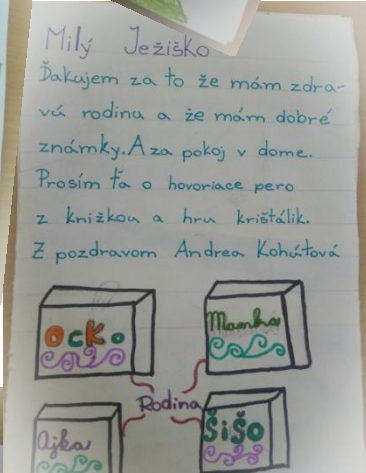 Milý Ježiško
Ďakujem za to že mám zdra-
vú rodinu a že mám dobré
známky. A za pokoj v dome.
Prosím ťa o hovoriace pero
z knižkou a hru krištálik.
Z pozdravom Andrea Kohútová
ocko
Mamka
Rodina
Ajka
ŠiŠo